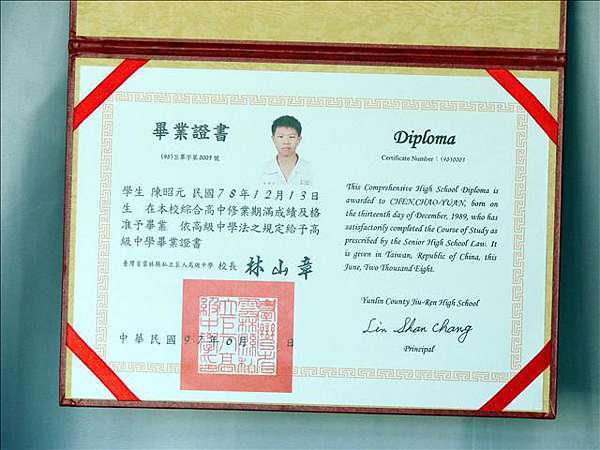 畢業證書
學生 陳昭元 民國78年12月13日
生 在本校綜合高中修業期滿成績及格
准予畢業 依高級中學法之規定給予高
級中學畢業證書
臺灣省雲林縣私立巨人高級中學 校長 林山章
中華民國97年06月 日
Diploma
Certificate Number : (96)0003
This Comprehensive High School Diploma is
awarded to CHEN,CHAO-YUAN, born on
the thirteenth day of December, 1989, who has
satisfactorily completed the Course of Study as
prescribed by the Senior High School Law. It
is given in Taiwan, Republic of China, this
June, Two Thousand Eight.
Yunlin County Jiu-Ren High School
Lin Shan Chang
Principal